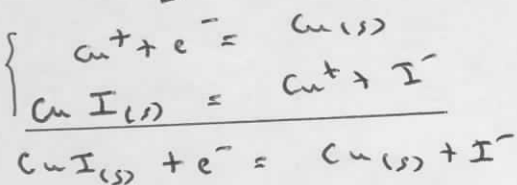 Cu⁺ + e⁻ = Cu(s)
CuI(s) = Cu⁺ + I⁻
CuI(s) + e⁻ = Cu(s) + I⁻